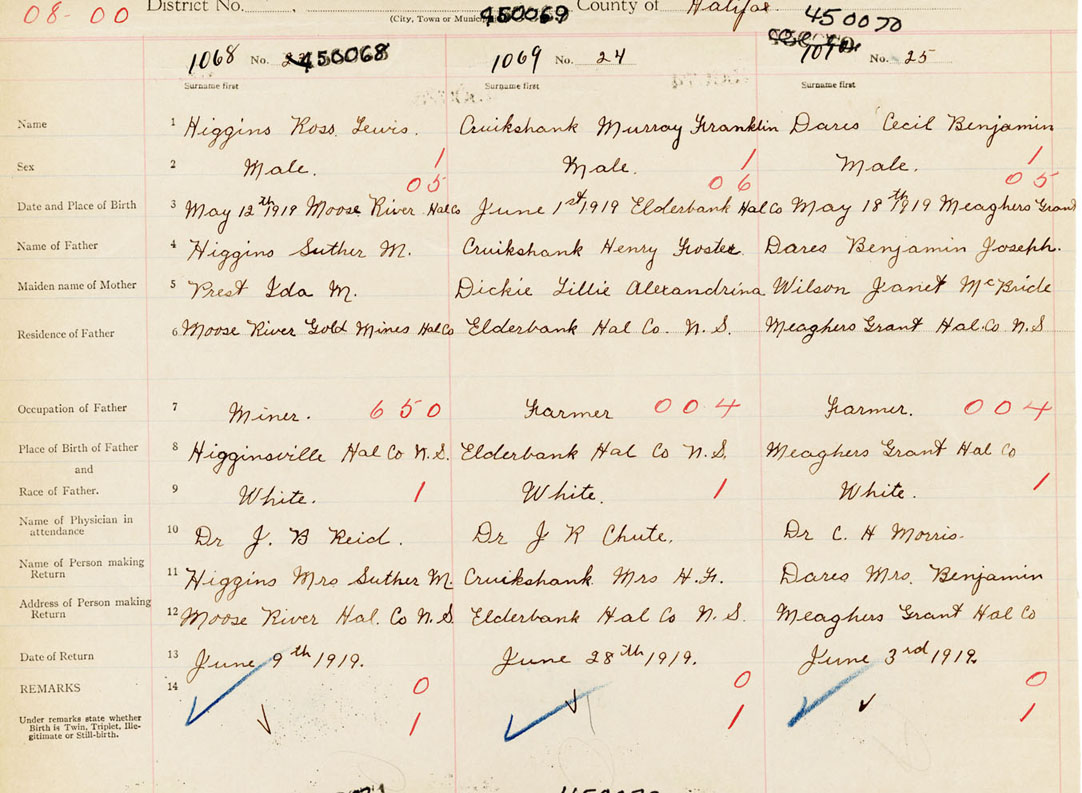 08-00 District No. (City, Town or Munici 450069 County of Halifax 450070
1068 No. 450068 1069 No. 24 No. 25
Surname first Surname first Surname first
Name 1 Higgins Ross Lewis. Cruikshank Murray Franklin Dares Cecil Benjamin
Sex 2 Male. 1 Male. 1 Male. 1
05 06 05
Date and Place of Birth 3 May 12th 1919 Moose River Hal Co June 1st 1919 Elderbank Hal Co May 18th 1919 Meaghers Grant
Name of Father 4 Higgins Suther M. Cruikshank Henry Foster. Dares Benjamin Joseph.
Maiden name of Mother 5 Prest Ida M. Dickie Lillie Alexandrina Wilson Janet McBride
Residence of Father 6 Moose River Gold Mines Hal Co Elderbank Hal Co. N. S. Meaghers Grant Hal. Co N. S
Occupation of Father 7 Miner. 650 Farmer 004 Farmer. 004
Place of Birth of Father 8 Higginsville Hal Co N. S. Elderbank Hal Co N. S. Meaghers Grant Hal Co
and
Race of Father. 9 White. 1 White. 1 White. 1
Name of Physician in attendance 10 Dr J. B Reid. Dr J R Chute. Dr C. H Morris.
Name of Person making Return 11 Higgins Mrs Suther M. Cruikshank Mrs H. F. Dares Mrs. Benjamin
Address of Person making Return 12 Moose River Hal. Co N. S. Elderbank Hal Co N. S. Meaghers Grant Hal Co
Date of Return 13 June 9th 1919. June 28th 1919. June 3rd 1919.
REMARKS 14 0 0 0
Under remarks state whether
Birth is Twin, Triplet, Ille-
gitimate or Still-birth. 1 1 1